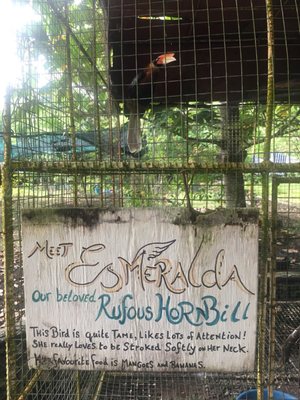 MEET
ESMERALDA
OUR beloved RUFOUS HORNBill
THIS BIRD IS QUITE TAME, LIKES LOTS OF ATTENTION!
SHE REALLY LOVES TO BE STROKED SOFTLY ON HER NECK.
HER FAVOURITE FOOD IS MANGOES AND BANANAS.